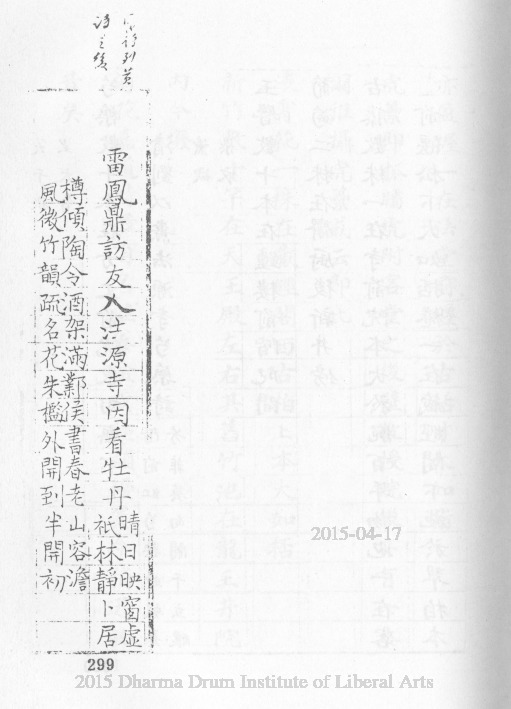 詩之後
雷鳳鼎訪友入法源寺因看牡丹
晴日映窗虛
祇林靜卜居
樽傾陶令酒架滿鄴侯書春老山容澹
風微竹韻疏名花朱檻外開到半開初
2015-04-17
299
2015 Dharma Drum Institute of Liberal Arts